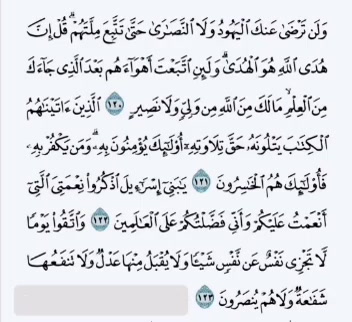 وَلَن تَرْضَىٰ عَنكَ الْيَهُودُ وَلَا النَّصَارَىٰ حَتَّىٰ تَتَّبِعَ مِلَّتَهُمْ ۗ قُلْ إِنَّ
هُدَى اللَّهِ هُوَ الْهُدَىٰ ۗ وَلَئِنِ اتَّبَعْتَ أَهْوَاءَهُم بَعْدَ الَّذِي جَاءَكَ
مِنَ الْعِلْمِ ۙ مَا لَكَ مِنَ اللَّهِ مِن وَلِيٍّ وَلَا نَصِيرٍ ١٢٠ الَّذِينَ ءَاتَيْنَاهُمُ
الْكِتَابَ يَتْلُونَهُۥ حَقَّ تِلَاوَتِهِۦ أُولَٰئِكَ يُؤْمِنُونَ بِهِۦ ۗ وَمَن يَكْفُرْ بِهِۦ
فَأُولَٰئِكَ هُمُ الْخَاسِرُونَ ١٢١ يَٰبَنِي إِسْرَٰءِيلَ اذْكُرُوا نِعْمَتِيَ الَّتِي
أَنْعَمْتُ عَلَيْكُمْ وَأَنِّي فَضَّلْتُكُمْ عَلَى الْعَالَمِينَ ١٢٢ وَاتَّقُوا يَوْمًا
لَّا تَجْزِي نَفْسٌ عَن نَّفْسٍ شَيْئًا وَلَا يُقْبَلُ مِنْهَا عَدْلٌ وَلَا تَنفَعُهَا
شَفَاعَةٌ وَلَا هُمْ يُنصَرُونَ ١٢٣